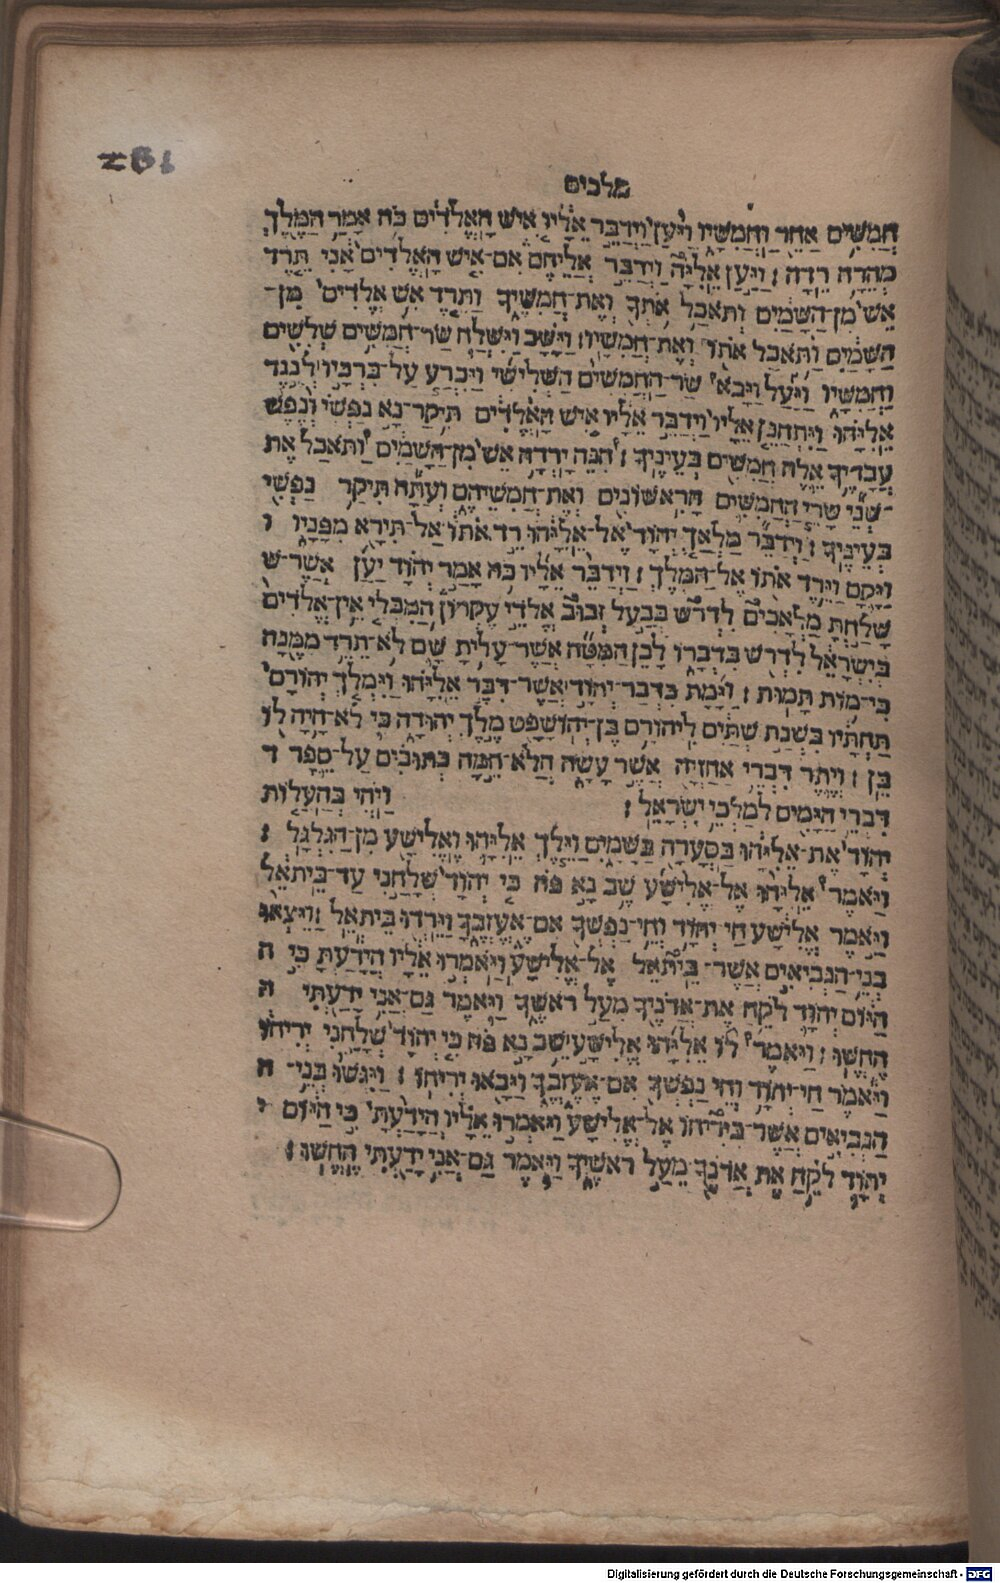 מלכים
חמשים אחר וחמשיו ויען וידבר אליו איש האלדים כה אמר המלך
מהרה רדה : ויען אליה וידבר אליהם אם־איש האלדים אני תרד
אש מן־השמים ותאכל אתך ואת־חמשיך ותרד אש אלדים מן־
השמים ותאכל אתו ואת־חמשיו : וישב וישלח שר־חמשים שלשים
וחמשיו ויעל ויבא שר־החמשים השלישי ויכרע על־ברכיו לנגד
אליהו ויתחנן אליו וידבר אליו איש האלדים תיקר־נא נפשי ונפש
עבדיך אלה חמשים בעיניך : הנה ירדה אש מן־השמים ותאכל את
־שני שרי החמשים הראשונים ואת־חמשיהם ועתה תיקר נפשי
בעיניך : וידבר מלאך יהוד אל־אליהו רד אתו אל־תירא מפניו ו
ויקם וירד אתו אל־המלך : וידבר אליו כה אמר יהוד יען אשר־ש
שלחת מלאכים לדרש בבעל זבוב אלדי עקרון המבלי אין־אלדים
בישראל לדרש בדברו לכן המטה אשר־עלית שם לא־תרד ממנה
כי־מות תמות : וימת כדבר־יהוד אשר־דבר אליהו וימלך יהורם
תחתיו בשנת שתים ליהורם בן־יהושפט מלך יהודה כי לא־היה לו
בן : ויתר דברי אחזיה אשר עשה הלא־המה כתובים על־ספר ד
דברי הימים למלכי ישראל : ויהי בהעלות
יהוד את־אליהו בסערה בשמים וילך אליהו ואלישע מן־הגלגל :
ויאמר אליהו אל־אלישע שב נא פה כי יהוד שלחני עד־ביתאל
ויאמר אלישע חי־יהוד וחי־נפשך אם־אעזבך וירדו ביתאל : ויצאו
בני־הנביאים אשר־ביתאל אל־אלישע ויאמרו אליו הידעת כי ה
היום יהוד לקח את־אדניך מעל ראשך ויאמר גם־אני ידעתי ה
החשו : ויאמר לו אליהו אלישע שב נא פה כי יהוד שלחני יריחו
ויאמר חי־יהוד וחי נפשך אם־אעזבך ויבאו יריחו : ויגשו בני־ ה
הנביאים אשר־ביריחו אל־אלישע ויאמרו אליו הידעת כי היום י
יהוד לקח את אדנך מעל ראשיך ויאמר גם־אני ידעתי החשו :
Digitalisierung gefördert durch die Deutsche Forschungsgemeinschaft - DFG